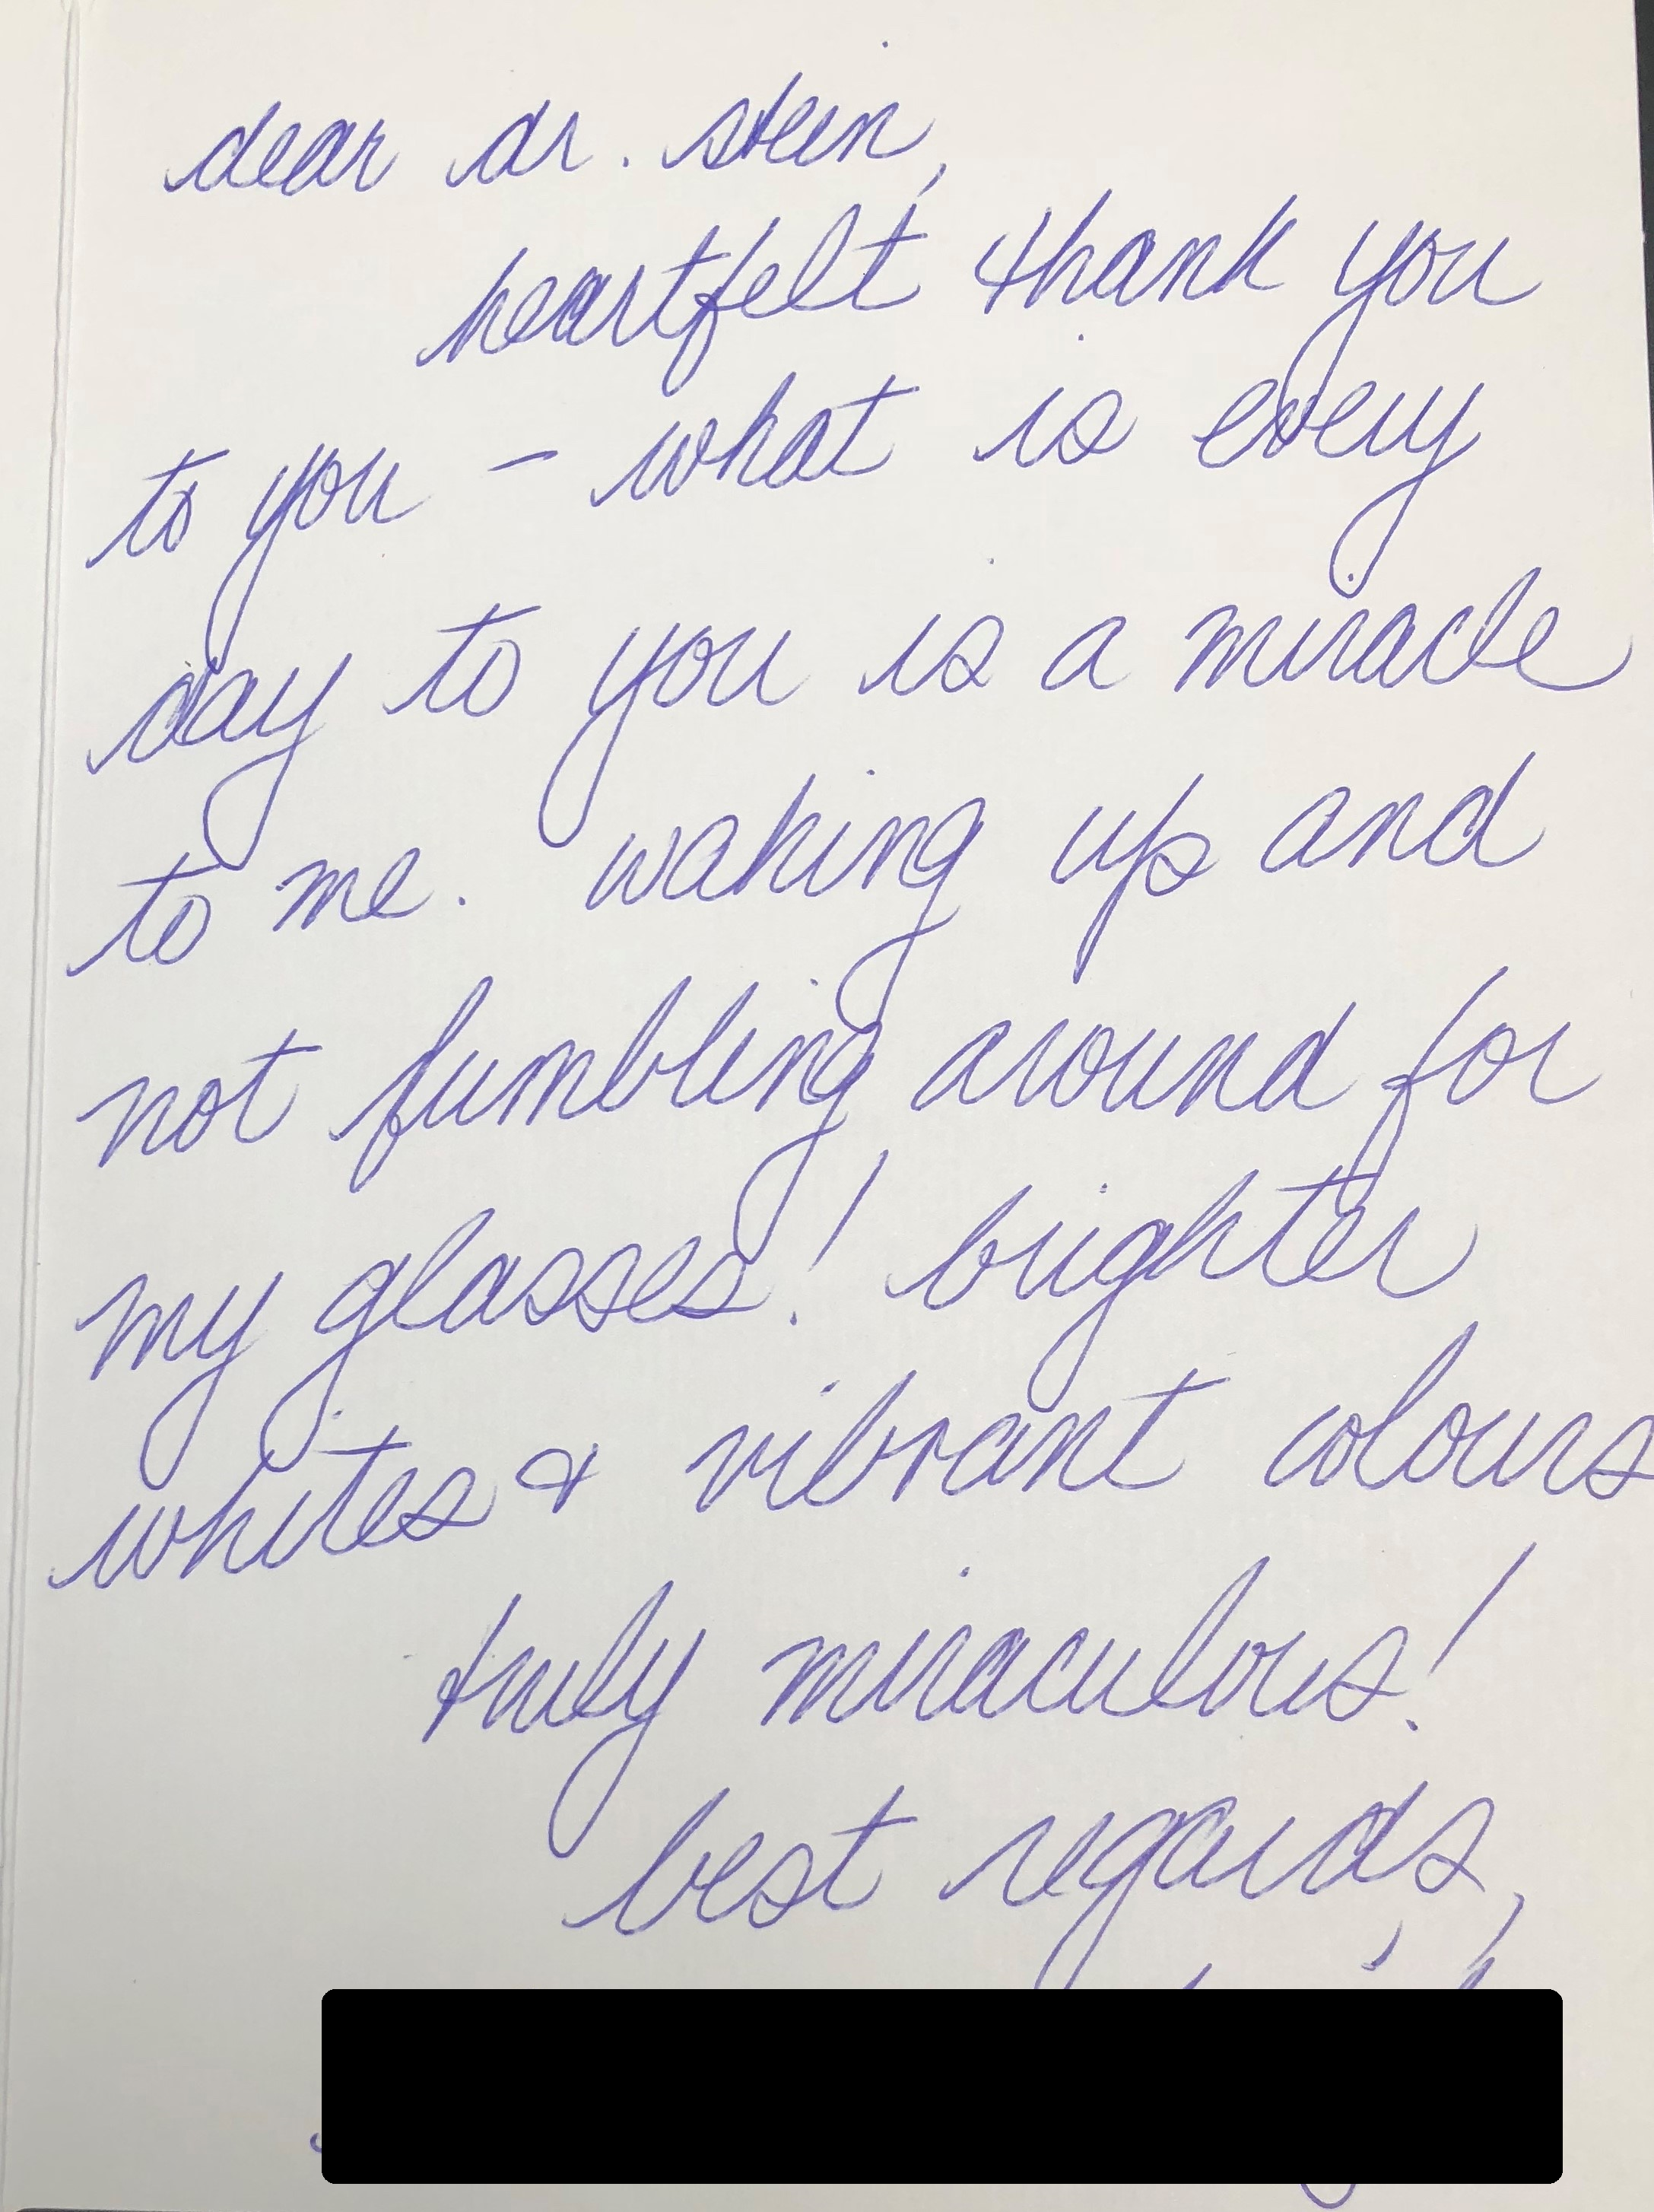 dear dr. stein,
heartfelt thank you
to you - what is every
day to you is a miracle
to me. waking up and
not fumbling around for
my glasses! brighter
whites & vibrant colours
truly miraculous!
best regards,